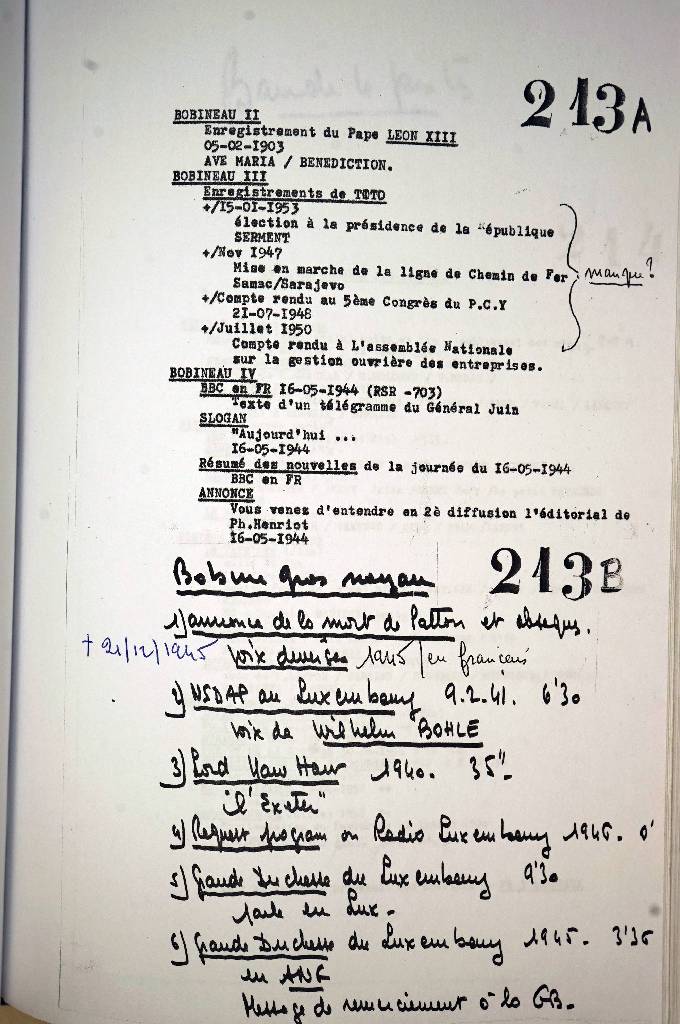 213A
BOBINEAU II
Enregistrement du Pape LEON XIII
05-02-I903
AVE MARIA / BENEDICTION.
BOBINEAU III
Enregistrements de TITO
+/I5-0I-I953
élection à la présidence de la République
SERMENT
+/Nov I947
Mise en marche de la ligne de Chemin de Fer
Samac/Sarajevo
manque?
+/Compte rendu au 5ème Congrès du P.C.Y
2I-07-I948
+/Juillet I950
Compte rendu à L'assemblée Nationale
sur la gestion ouvrière des entreprises.
BOBINEAU IV
BBC en FR I6-05-I944 (RSR -703)
Texte d'un télégramme du Général Juin
SLOGAN
"Aujourd'hui ...
I6-05-I944
Résumé des nouvelles de la journée du I6-05-I944
BBC en FR
ANNONCE
Vous venez d'entendre en 2è diffusion l'éditorial de
Ph.Henriot
I6-05-I944
213B
Bobine gros noyau
1) annonce de la mort de Patton et obsèques.
+ 21/12/1945 voix diverses 1945 / en français
2) NSDAP au Luxembourg 9.2.41. 6'30
voix de Wilhelm BOHLE
3) Lord Haw Haw 1940. 35"
"l'Exeter"
4) Request program on Radio Luxembourg 1945.
5) Grande Duchesse du Luxembourg 9'30
parle en Lux.
6) Grande Duchesse du Luxembourg 1945. 3'36
en ANG
Message de remerciement à la GB.